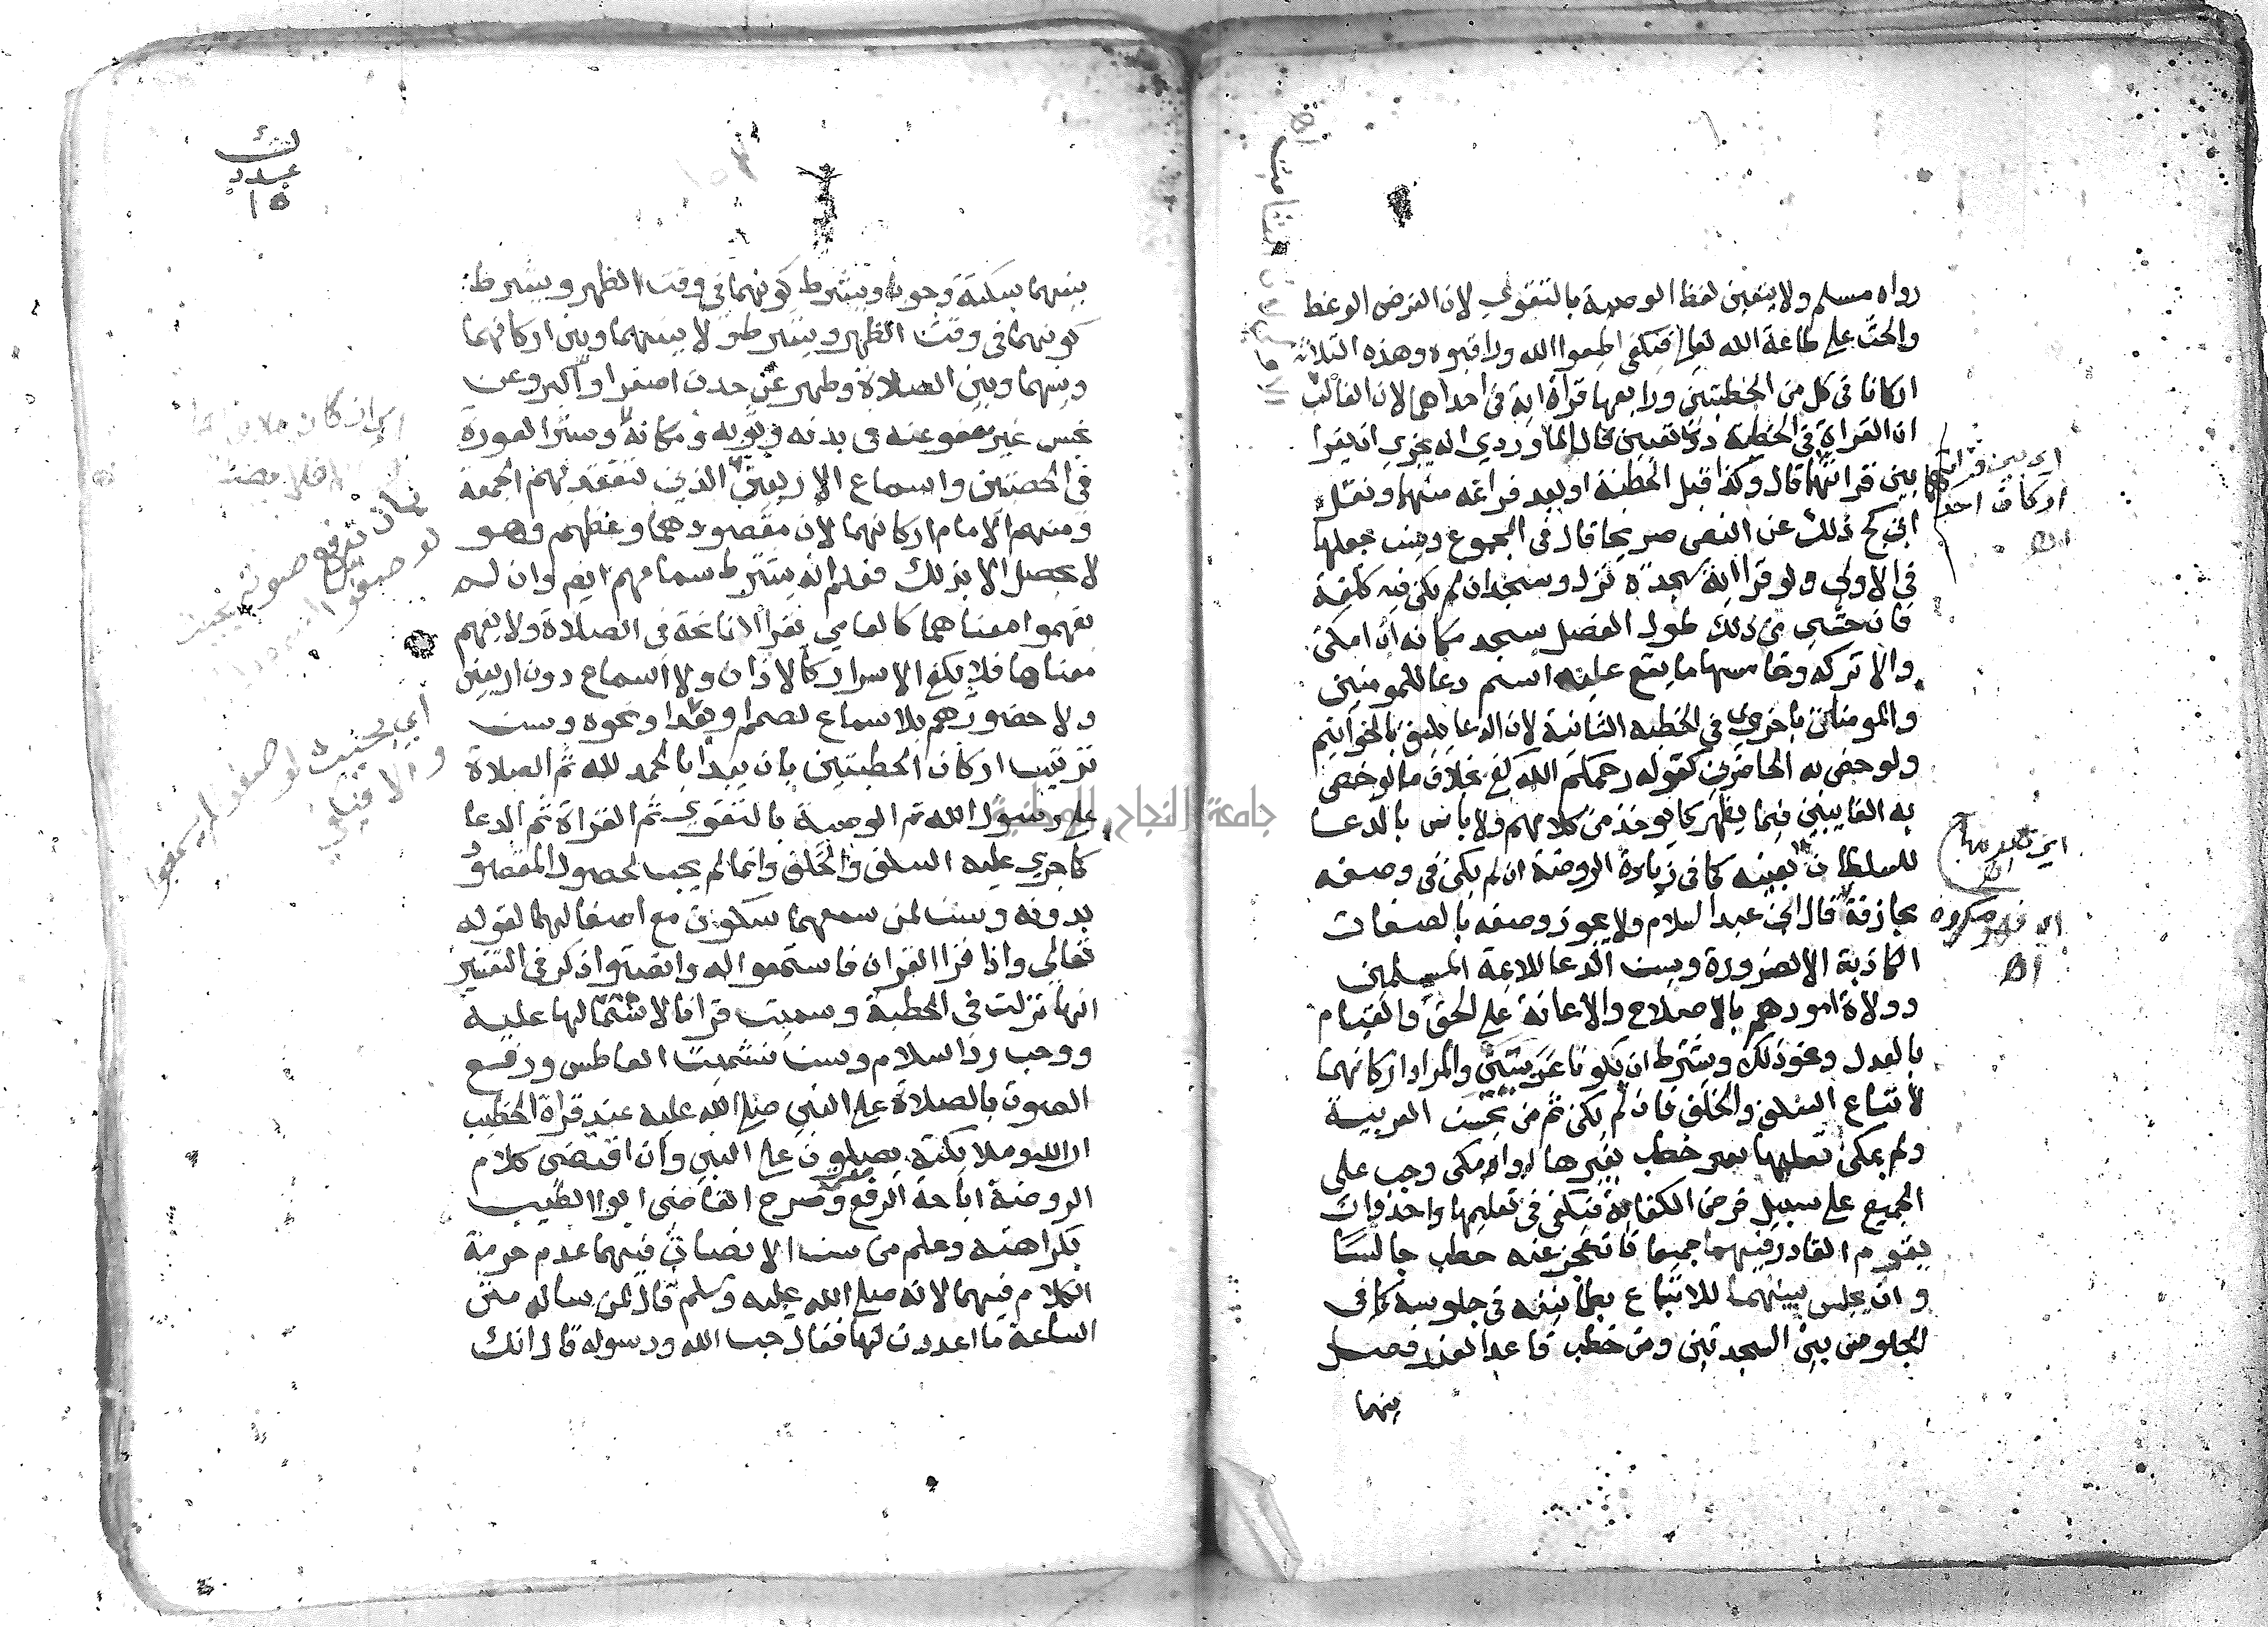 رواه مسلم ولا يتعين لفظ الوصية بالتقوي لان الغرض الوعظ
والحث علي طاعة الله تعالي فيكفي اطيعوا الله وراقبوه وهذه الثلاثة
اركانا في كل من الخطبتين ورابعها قراة اية في احداهما لان الغالب
ان القراة في الخطبة دون تعيين قال الماوردي انه يجزي ان يقرا
بين قراتهما قال وكذا قبل الخطبة او بعد فراغه منهما ونقل
ابن كج ذلك عن النص صريحا قال في المجموع ويسن جعلها
في الاولي ولو قرا اية سجدة نزل وسجد ان لم يكن فيه كلفة
فان خشي من ذلك طول الفصل سجد مكانه ان امكن
والا تركه وخامسها ما يقع عليه اسم دعا للمومنين
والمومنات باخروي في الخطبه الثانية لان الدعا يليق بالخواتيم
ولو خص به الحاضرين كقوله رحمكم الله كفي بخلاف ما لو خص
به الغايبين فيما يظهر كما يوخذ من كلامهم ولا باس بالدعا
للسلطان بعينه كما في زيادة الروضة ان لم يكن في وصفه
مجازفة قال ابن عبد السلام ولا يجوز وصفه بالصفات
الكاذبة الا لضرورة ويسن الدعا لائمة المسلمين
وولاة امورهم بالاصلاح والاعانة علي الحق والقيام
بالعدل ونحو ذلك ويشترط ان يكونا عربيتين والمراد اركانهما
لاتباع السلف والخلف فان لم يكن ثم من يحسن العربية
ولم يمكن تعلمها خطب بغيرها او امكن وجب علي
الجميع علي سبيل فرض الكفاية فيكفي في تعليمها واحد وان
يقوم القادر فيهما جميعا فان عجز عنه خطب جالسا
وان يجلس بينهما للاتباع بطمانينه في جلوسه كما في
الجلوس بين السجدتين ومن خطب قاعدا لعذر فصل
بينهما
اي فهو مكروه
اه
لك
عدد
١٥
بينهما بسكتة وجوبا ويشترط كونهما في وقت الظهر ويشرط
كونهما في وقت الظهر ويشرط ولا بينهما وبين اركانهما
وبينهما وبين الصلاة وطهر عن حدث اصغر او اكبر وعن
نجس غير معفو عنه في بدنه وثوبه ومكانه وستر العورة
في الخطبتين واسماع الاربعين الذين تنعقد بهم الجمعة
ومنهم الامام اركانهما لان مقصودهما وعظهم وهو
لا يحصل الا بذلك فعلم انه يشترط سماعهم ايض وان لم
يفهموا معناهما كالعامي يقرا الفاتحة في الصلاة ولا يفهم
معناها فلا يكفي الاسرار كالاذان ولا اسماع دون اربعين
ولا حضورهم بلا سماع لصمم او بعد او نحوه وسن
ترتيب اركان الخطبتين بان يبدا بالحمد لله ثم الصلاة
علي رسول الله ثم الوصية بالتقوي ثم القراة ثم الدعا
كما جري عليه السلف والخلف وانما لم يجب لحصول المقصود
بدونه وسن لمن سمعهما سكوت مع اصغا لهما لقوله
تعالي واذا قرا القران فاستمعوا له وانصتوا ذكر في التفسير
انها نزلت في الخطبة وسميت قرانا لاشتمالها عليه
ووجب رد السلام وسن تشميت العاطس ورفع
الصوت بالصلاة علي النبي صلي الله عليه عند قراة الخطيب
ان الله وملائكته يصلون علي النبي وان اقتضي كلام
الروضة اباحة الرفع وصرح القاضي ابو الطيب
بكراهته وعلم من سن الانصات فيهما عدم حرمة
الكلام فيهما لانه صلي الله عليه وسلم قال لمن ساله متي
الساعة ما اعددت لها فقال حب الله ورسوله قال انك
بان يرفع صوته بحيث
اي بحيث لو اصغوا لسمعوا
جامعة النجاح الوطنية